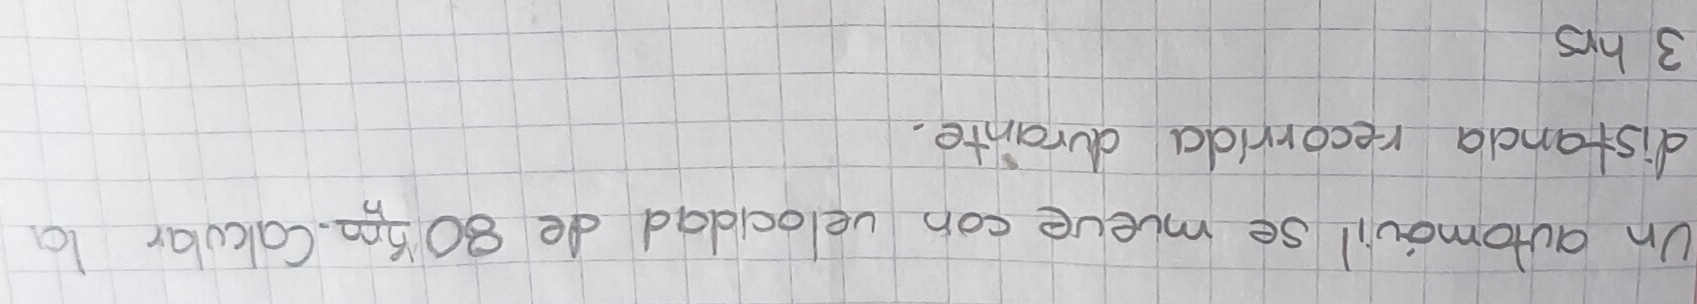 Un automóvil se mueve con velocidad de 80 km/h. Calcular la
distancia recorrida durante.
3 hrs